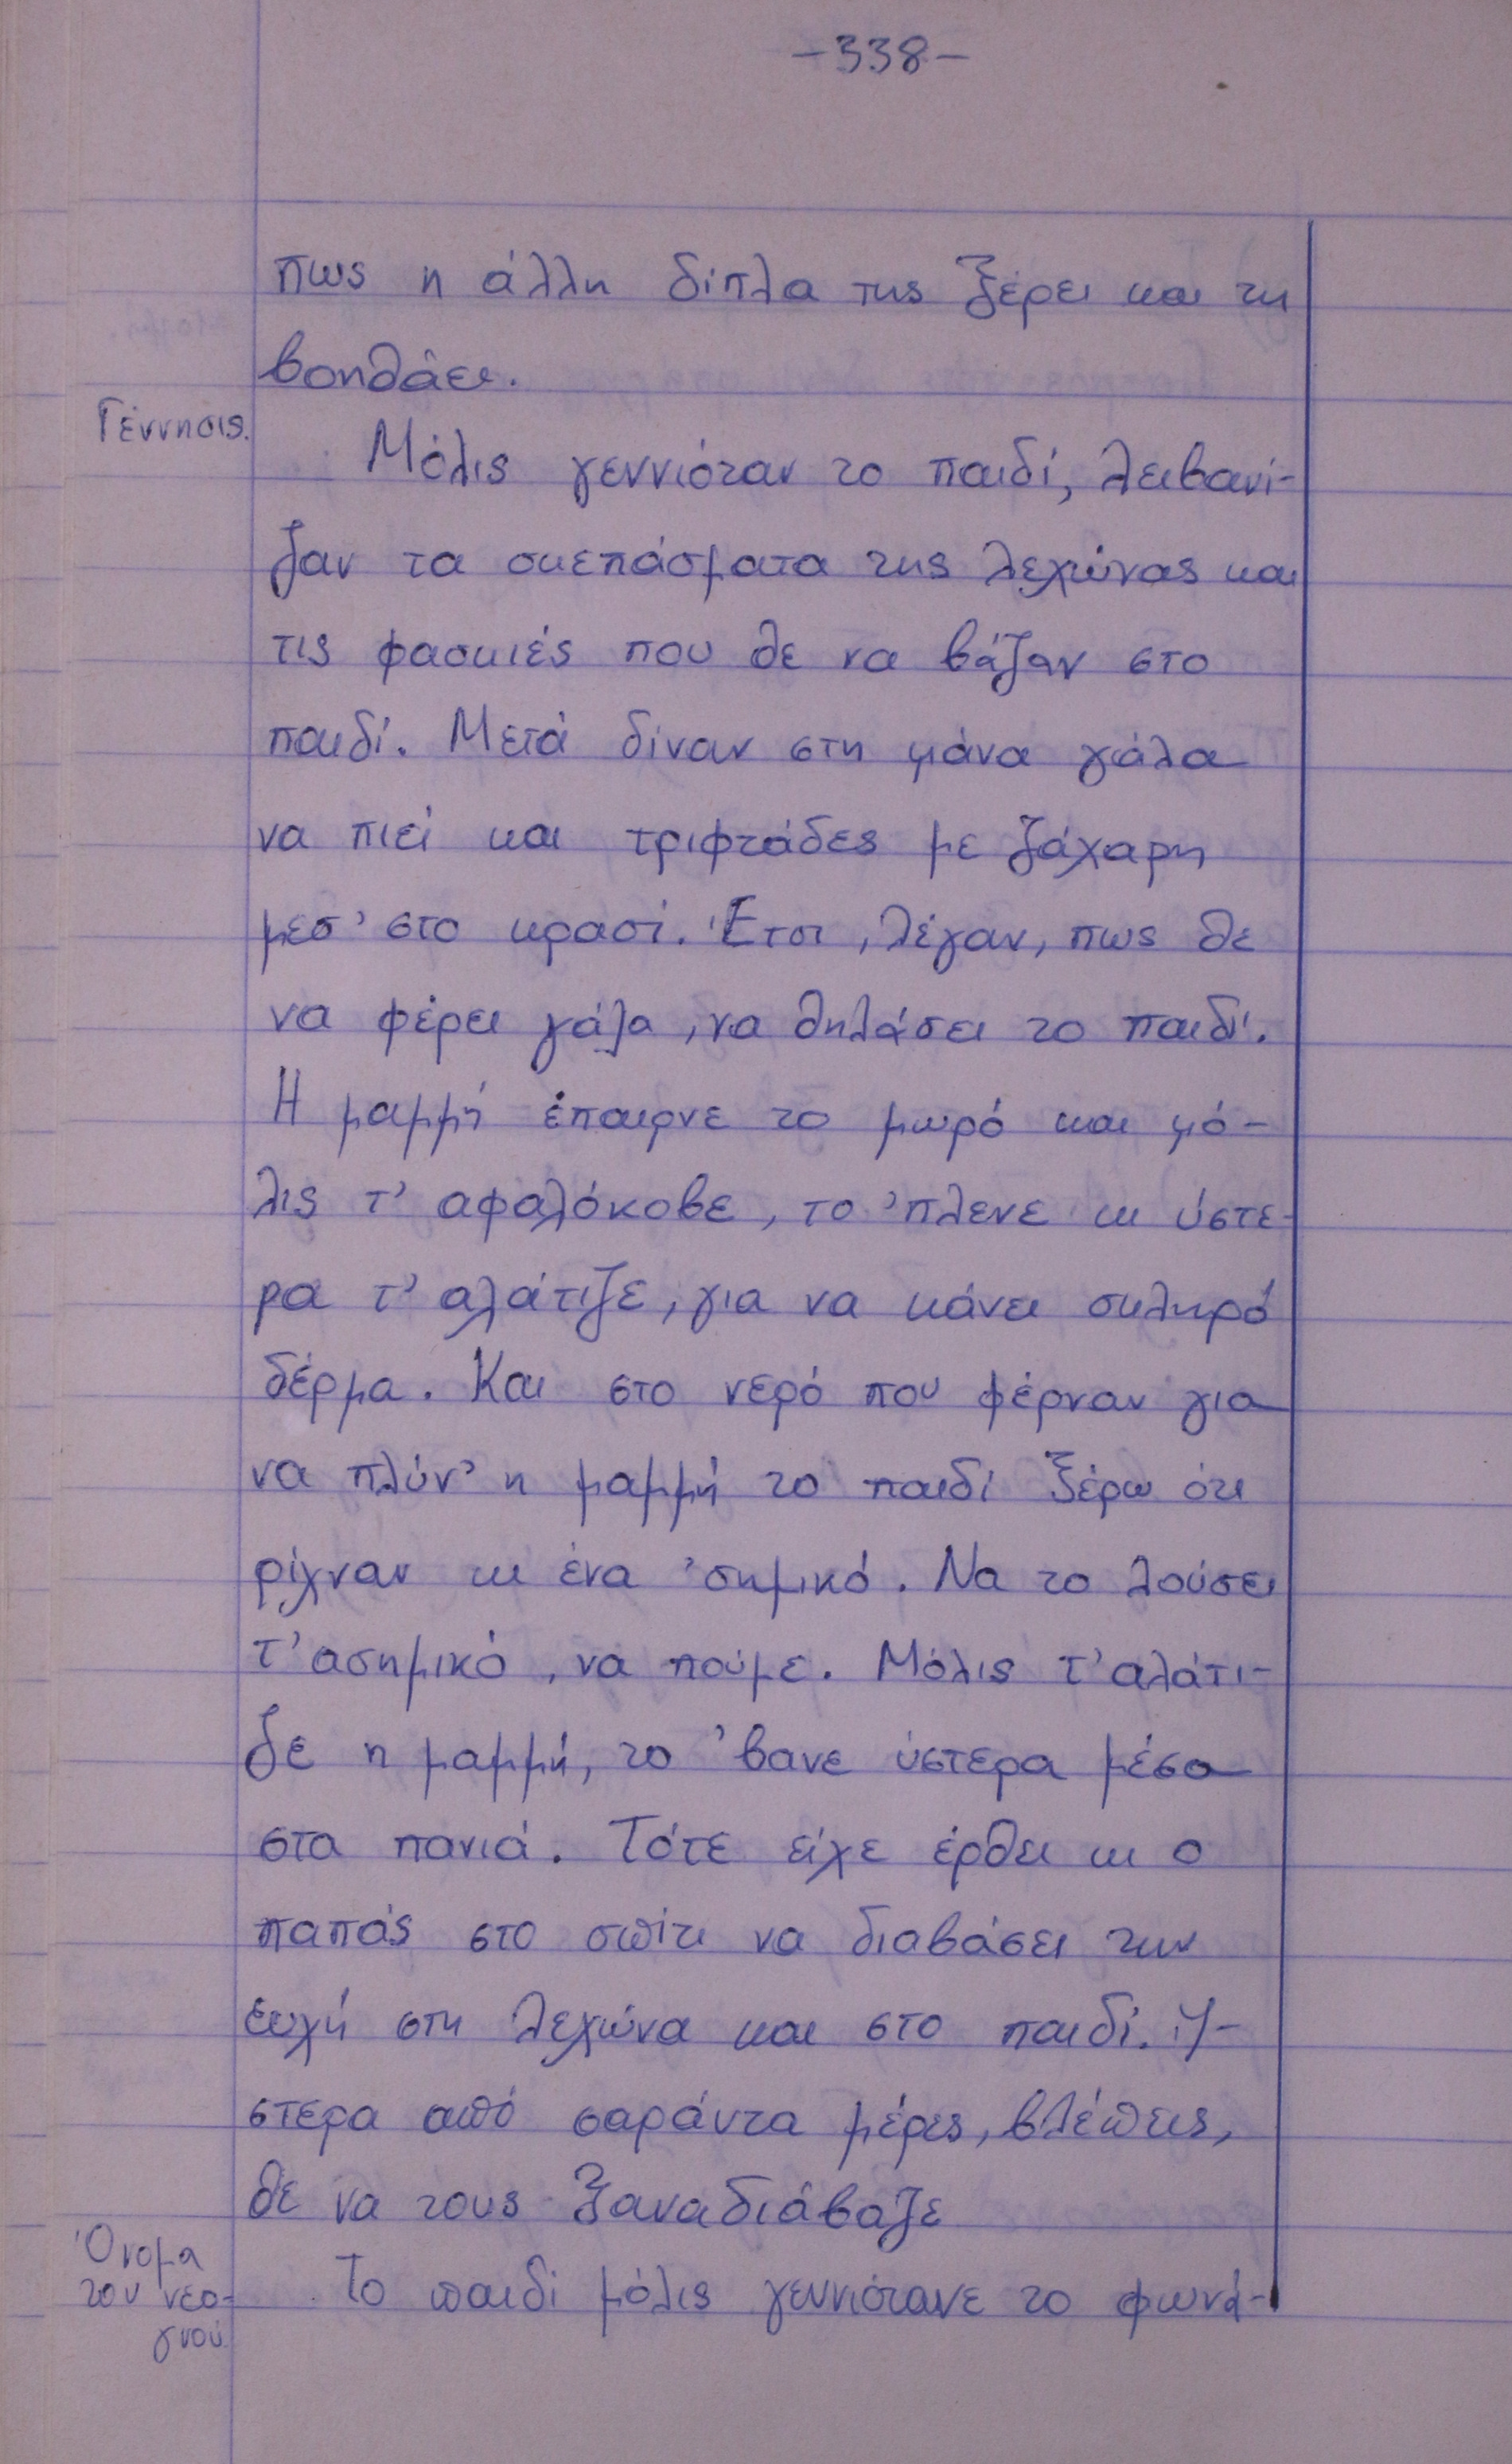 -338-
πως η άλλη δίπλα της ξέρει και τη
βοηθάει.
Γέννησις.
Μόλις γεννιόταν το παιδί, λειβανί-
ζαν τα σκεπάσματα της λεχώνας και
τις φασκιές που θε να βάζαν στο
παιδί. Μετά δίναν στη μάνα γάλα
να πιεί και τριφτάδες με ζάχαρη
μεσ' στο κρασί. Έτσι, λέγαν, πως θε
να φέρει γάλα, να θηλάσει το παιδί.
Η μαμμή έπαιρνε το μωρό και μό-
λις τ' αφαλόκοβε, το 'πλενε κι ύστε-
ρα τ' αλάτιζε, για να κάνει σκληρό
δέρμα. Και στο νερό που φέρναν για
να πλύν' η μαμμή το παιδί ξέρω ότι
ρίχναν κι ένα 'σημικό. Να το λούσει
τ' ασημικό, να πούμε. Μόλις τ' αλάτι-
ζε η μαμμή, το 'βανε ύστερα μέσα
στα πανιά. Τότε είχε έρθει κι ο
παπάς στο σπίτι να διαβάσει την
ευχή στη λεχώνα και στο παιδί. Ύ-
στερα από σαράντα μέρες, βλέπεις,
θε να τους ξαναδιάβαζε
Όνομα
του νεο-
γνού
Το παιδί μόλις γεννιότανε το φωνά-